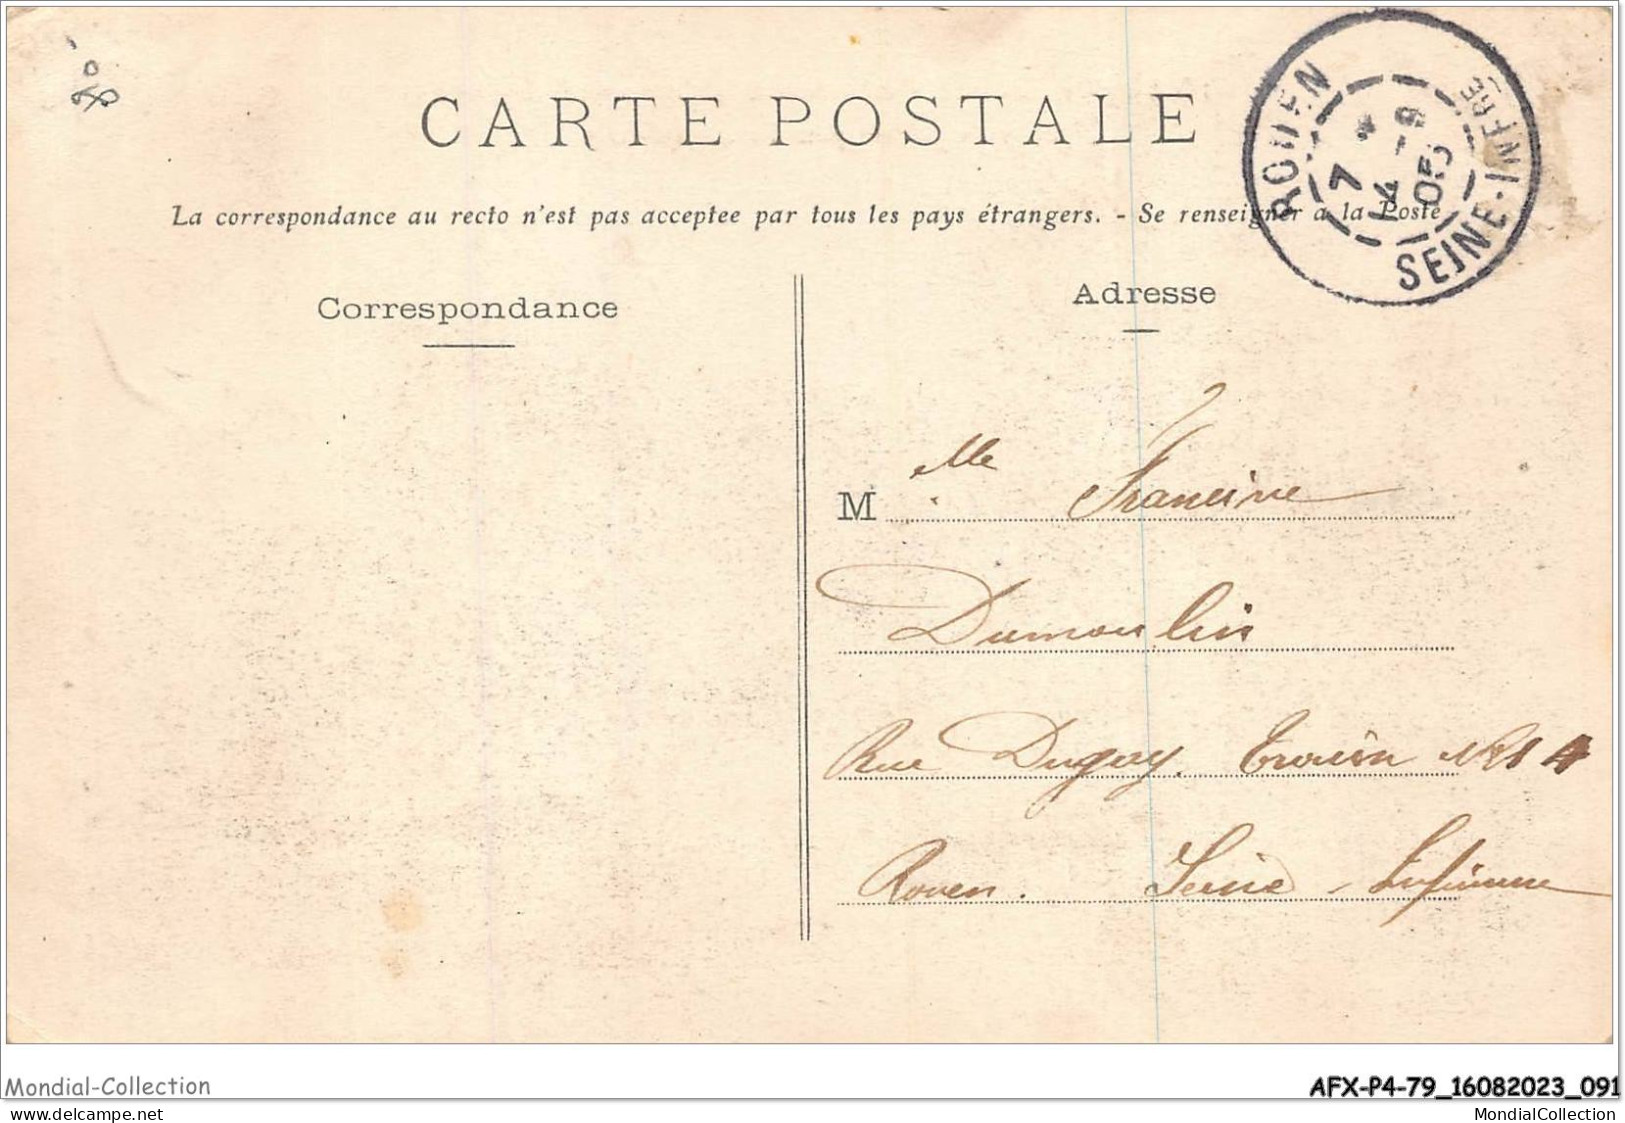 80
CARTE POSTALE
ROUEN
SEINE-INFRE
7
14 - 9
05
La correspondance au recto n'est pas acceptee par tous les pays étrangers. - Se renseigner a la Poste
Correspondance
Adresse
M lle Francine
Dumoulin
Rue Duguay Trouin No 14
Rouen. Seine - Inférieure
Mondial-Collection
AFX-P4-79_16082023_091
www.delcampe.net
MondialCollection